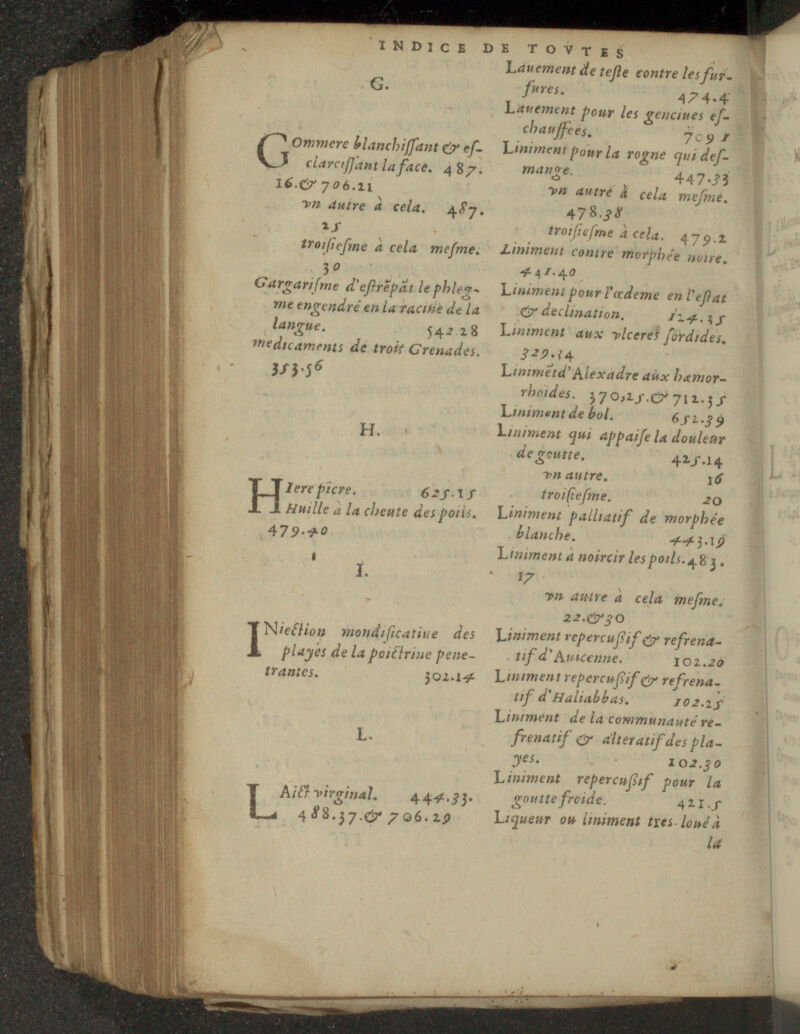 INDICE DE TOVTES
G.
GOmmere blanchissant & es-
clarcissant la face. 487.
16.& 706.21
vn autre à cela. 487.
25
troisiesme à cela mesme.
30
Gargarisme d'estrẽpãt le phleg-
me engendré en la racine de la
langue. 542 28
medicaments de trois Grenades.
353.56
H.
HIere picre. 625.15
Huille à la cheute des poils.
479.40
I.
INiection mondificatiue des
playes de la poictrine pene-
trantes. 302.14
L.
LAict virginal. 444.33.
488.37.& 706.29
Lauement de teste contre les fur-
fures. 474.4
Lauement pour les genciues es-
chauffees. 709 1
Liniment pour la rogne qui des-
mange. 447.33
vn autre à cela mesme.
478.38
troisiesme à cela. 479.2
Liniment contre morphée noire.
441.40
Liniment pour l'œdeme en l'estat
& declination. 124.35
Liniment aux vlceres sordides.
329.14
Linimẽt d'Alexãdre aux hæmor-
rhoides. 370,25.& 712.35
Liniment de bol. 652.39
Liniment qui appaise la douleur
de goutte. 425.14
vn autre. 16
troisiesme. 20
Liniment palliatif de morphée
blanche. 443.19
Liniment à noircir les poils. 483.
17
vn autre à cela mesme.
22.& 30
Liniment repercussif & refrena-
tif d'Auicenne. 102.20
Liniment repercussif & refrena-
tif d'Haliabbas. 102.25
Liniment de la communauté re-
frenatif & alteratif des pla-
yes. 102.30
Liniment repercussif pour la
goutte froide. 421.5
Liqueur ou liniment tres-loué à
la